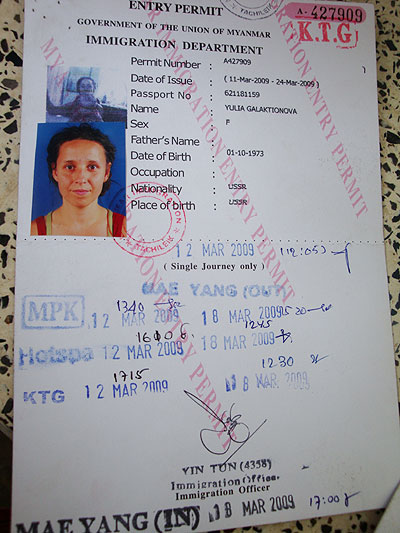 ENTRY PERMIT
TACHILEIK
A-427909
K.T.G
GOVERNMENT OF THE UNION OF MYANMAR
IMMIGRATION DEPARTMENT
Permit Number : A427909
Date of Issue : (11-Mar-2009 - 24-Mar-2009)
Passport No : 621181159
Name : YULIA GALAKTIONOVA
Sex : F
Father's Name :
Date of Birth : 01-10-1973
Occupation :
Nationality : USSR
Place of birth : USSR
TACHILEIK
MYANMAR IMMIGRATION ENTRY PERMIT
IMMIGRATION ENTRY PERMIT
12 MAR 2009
( Single Journey only )
MAE YANG (OUT)
MPK 12 MAR 2009 18 MAR 2009
1245
Hotspa 12 MAR 2009 18 MAR 2009
1715 1230
KTG 12 MAR 2009 18 MAR 2009
YIN TUN (4358)
Immigration Officer
Immigration Officer
MAE YANG (IN) 18 MAR 2009 17:00